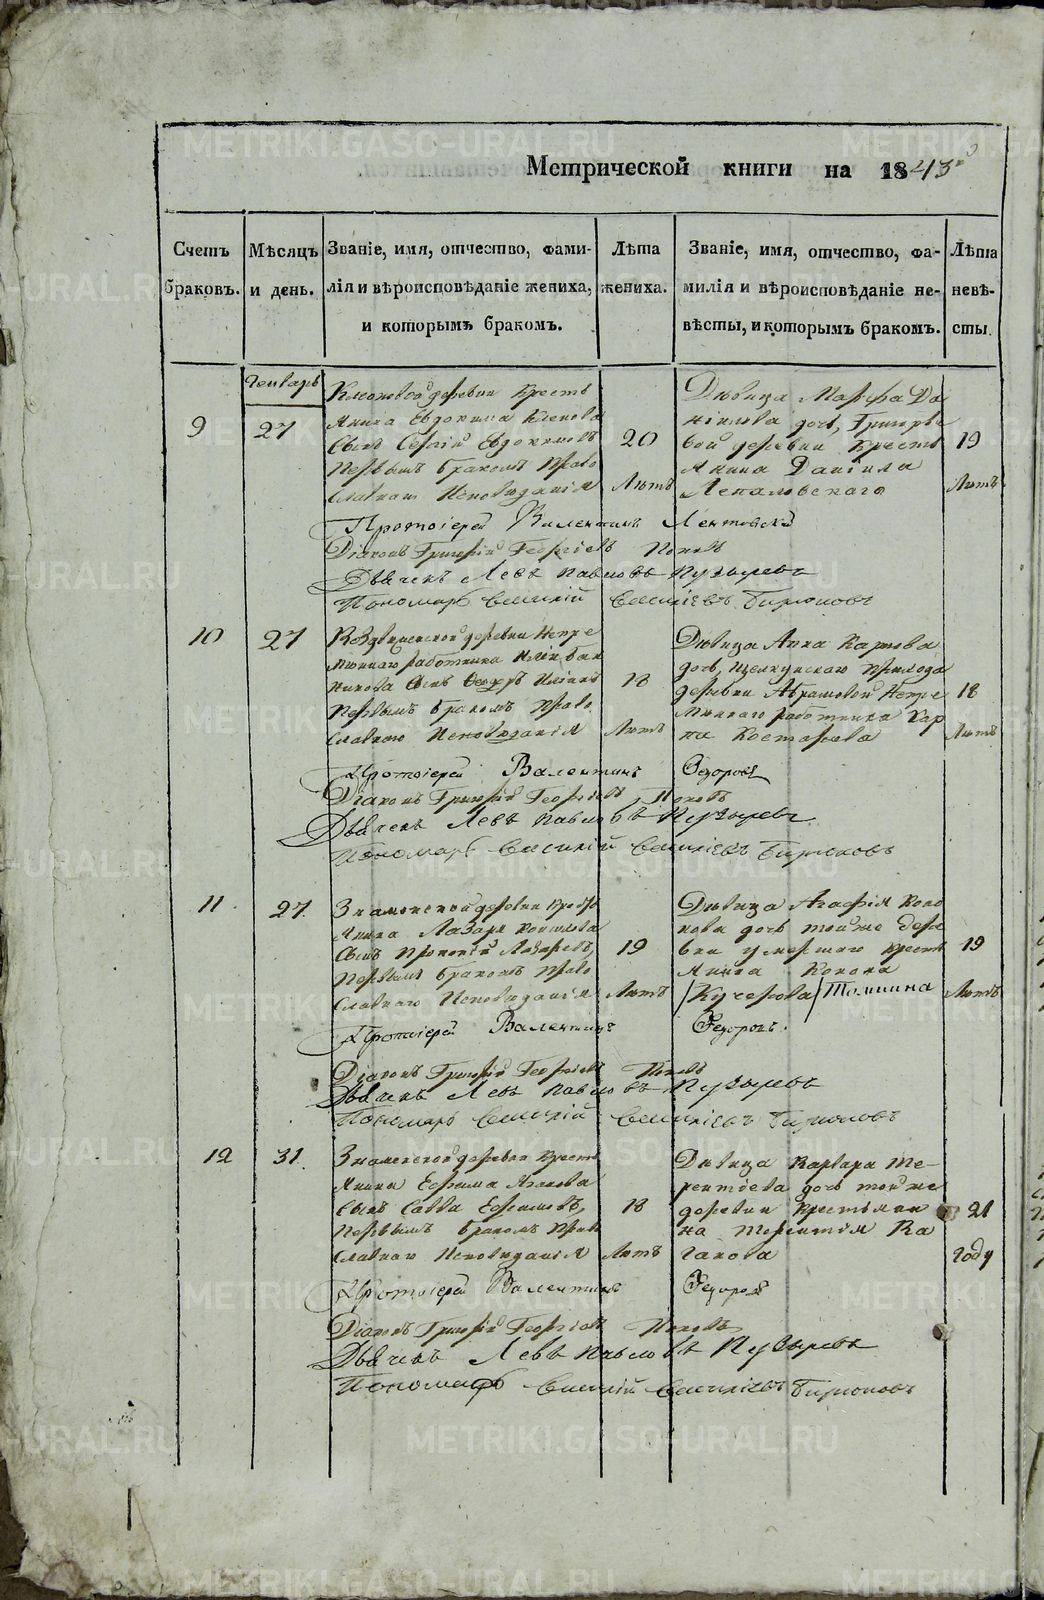 Метрической книги на 1843º
Счетъ браковъ.
Мѣсяцъ и день.
Званіе, имя, отчество, фамилія и вѣроисповѣданіе жениха, и которымъ бракомъ.
Лѣта жениха.
Званіе, имя, отчество, фамилія и вѣроисповѣданіе невѣсты, и которымъ бракомъ.
Лѣта невѣсты.
Генварь
9
27
деревни Кресть
янина Евдокима Кленова
Сынъ Сергій Евдокимовъ
Первымъ бракомъ Право
славнаго Исповѣданія
20
Лѣтъ
Дѣвица Марфа Да
нилова дочь, Григорье
вой деревни Кресть
янина Даніила
19
Лѣтъ
Протоіерей Валентинъ
Діаконъ Григорій Георгіевъ Поповъ
Дьячекъ Левъ Павловъ Пузыревъ
Пономарь Василій Васильевъ Бирюковъ
10
27
деревни Непре
мѣннаго работника Иліи Бан
никова Сынъ Ѳеодоръ Иліинъ
Первымъ бракомъ Право
славнаго Исповѣданія
18
Лѣтъ
Дѣвица Анна Карпова
дочь, Щелкунскаго Прихода
деревни Абрамовой Непре
мѣннаго работника Кар
па Костарева
18
Лѣтъ
Протоіерей Валентинъ Ѳедоровъ
Діаконъ Григорій Георгіевъ Поповъ
Дьячекъ Левъ Павловъ Пузыревъ
Пономарь Василій Васильевъ Бирюковъ
11
27
Знаменской деревни Кресть
янина Лазаря
Сынъ Прокопій Лазаревъ,
Первымъ бракомъ Право
славнаго Исповѣданія
19
Лѣтъ
Дѣвица Агафія Коно
нова дочь той же дере
вни умершаго Кресть
янина Конона
/Кучерова/ Томинина
19
Лѣтъ
Протоіерей Валентинъ Ѳедоровъ.
Діаконъ Григорій Георгіевъ Поповъ
Дьячекъ Левъ Павловъ Пузыревъ
Пономарь Василій Васильевъ Бирюковъ
12
31
Знаменской деревни Кресть
янина Ефима
Сынъ Савва Ефимовъ,
Первымъ бракомъ Право
славнаго Исповѣданія
18
Лѣтъ
Дѣвица Варвара Те-
рентіева дочь той же
деревни Крестьяни
на Терентія Ка
21
году
Протоіерей Валентинъ Ѳедоровъ
Діаконъ Григорій Георгіевъ Поповъ
Дьячекъ Левъ Павловъ Пузыревъ
Пономарь Василій Васильевъ Бирюковъ
METRIKI.GASO-URAL.RU